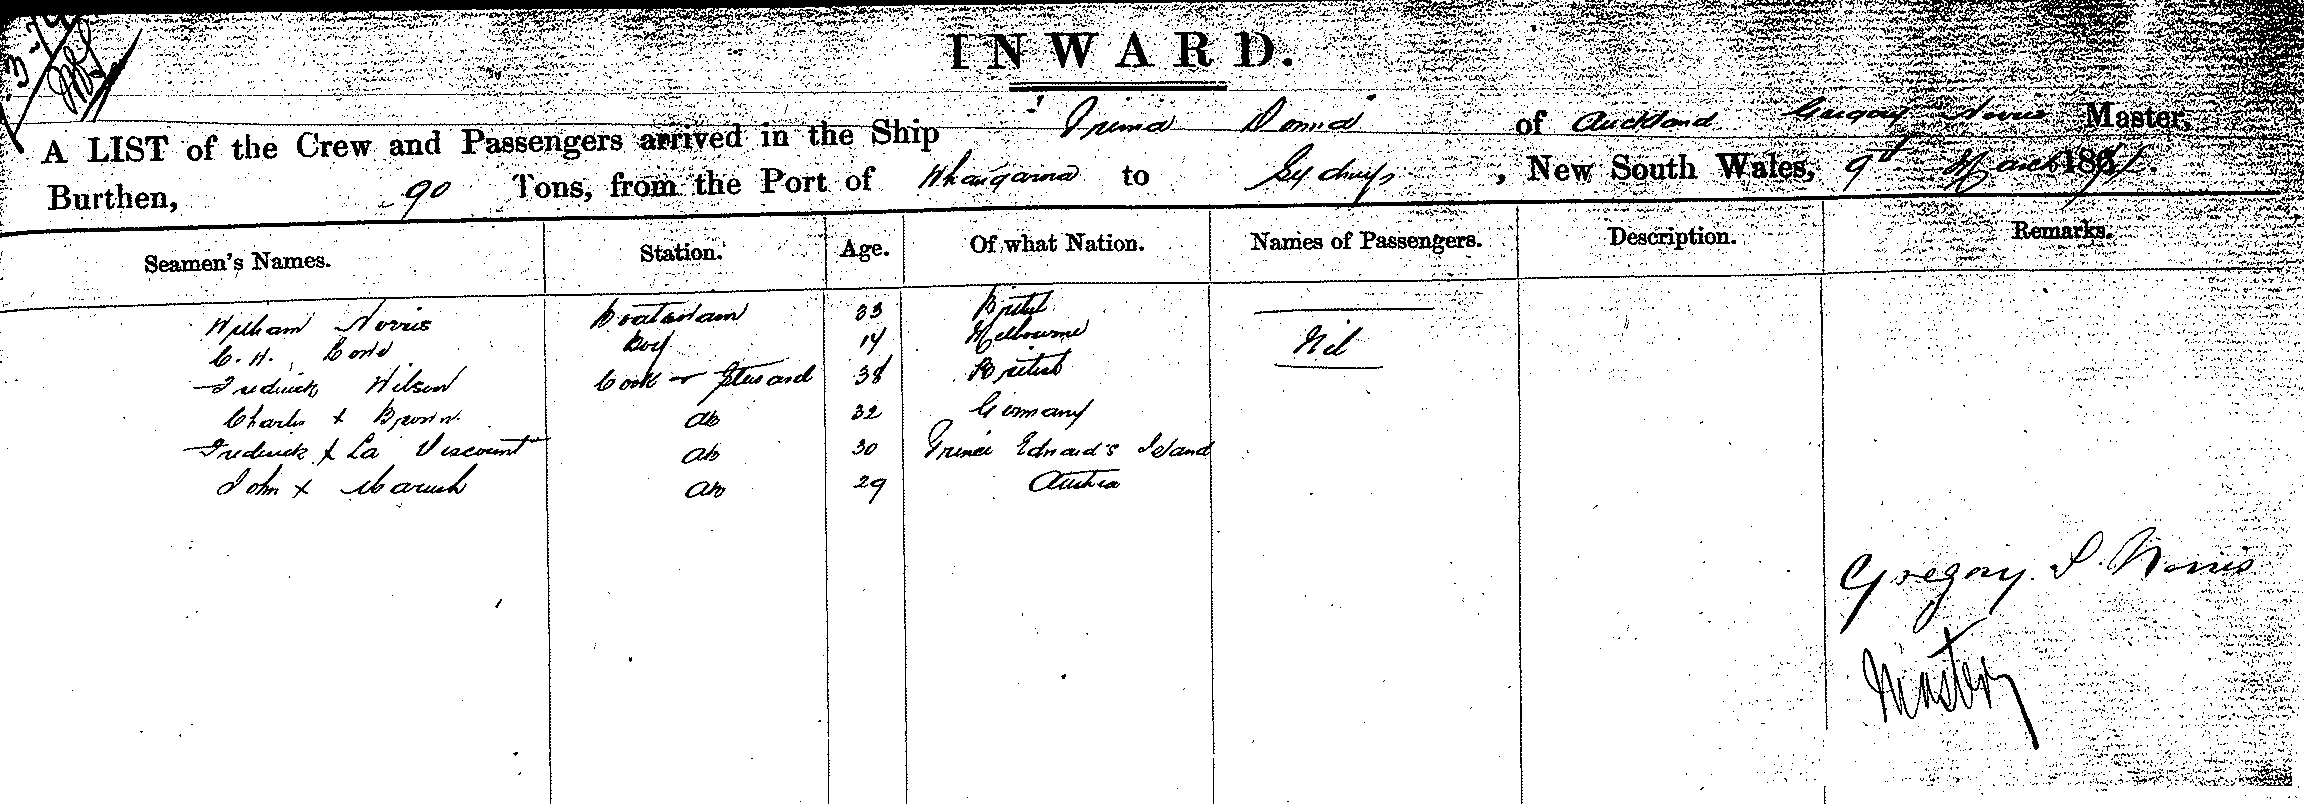 INWARD.
A LIST of the Crew and Passengers arrived in the Ship Prima Donna of Auckland Gregory Norris Master,
Burthen, 90 Tons, from the Port of Whangaroa to Sydney, New South Wales, 9th March 18
Seamen's Names. Station. Age. Of what Nation. Names of Passengers. Description. Remarks.
William Norris Boatswain 33 British
C. H. Boy 14 Melbourne Nil
Fredrick Wilson Cook & Steward 38 British
Charles x Brown AB 32 Germany
Fredrick x La Viscount AB 30 Prince Edward's Island
John x AB 29 Austria
Gregory Norris
Master